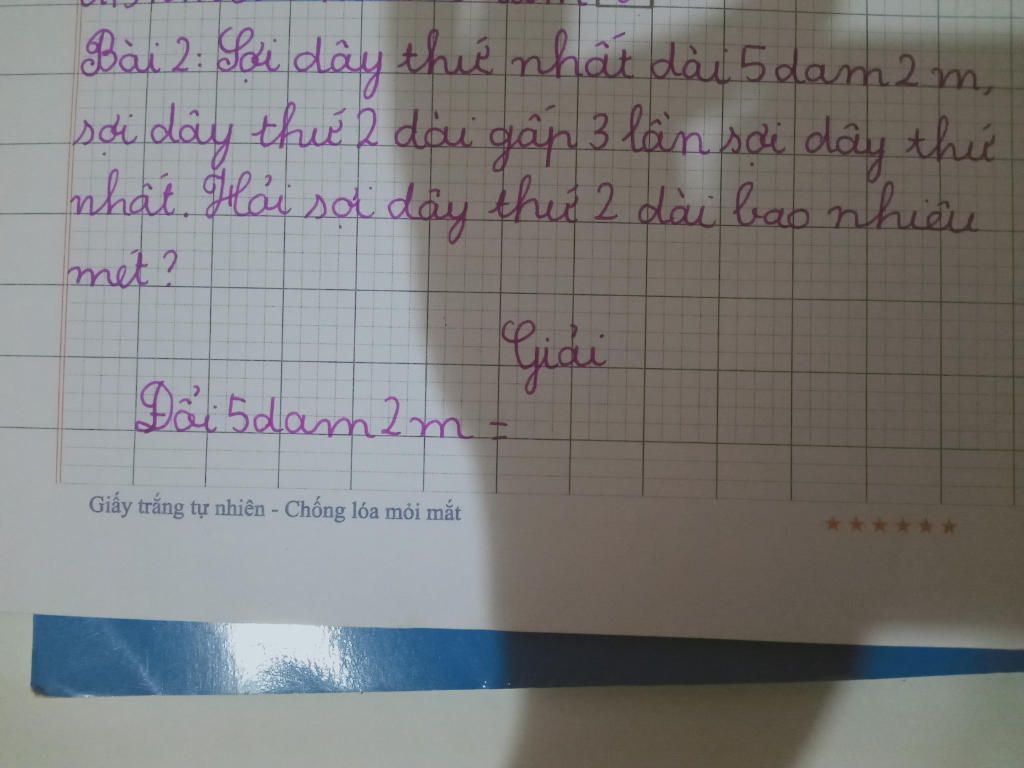 Bài 2: Sợi dây thứ nhất dài 5dam2m,
sợi dây thứ 2 dài gấp 3 lần sợi dây thứ
nhất. Hỏi sợi dây thứ 2 dài bao nhiêu
mét?
Giải
Đổi 5dam2m =
Giấy trắng tự nhiên - Chống lóa mỏi mắt